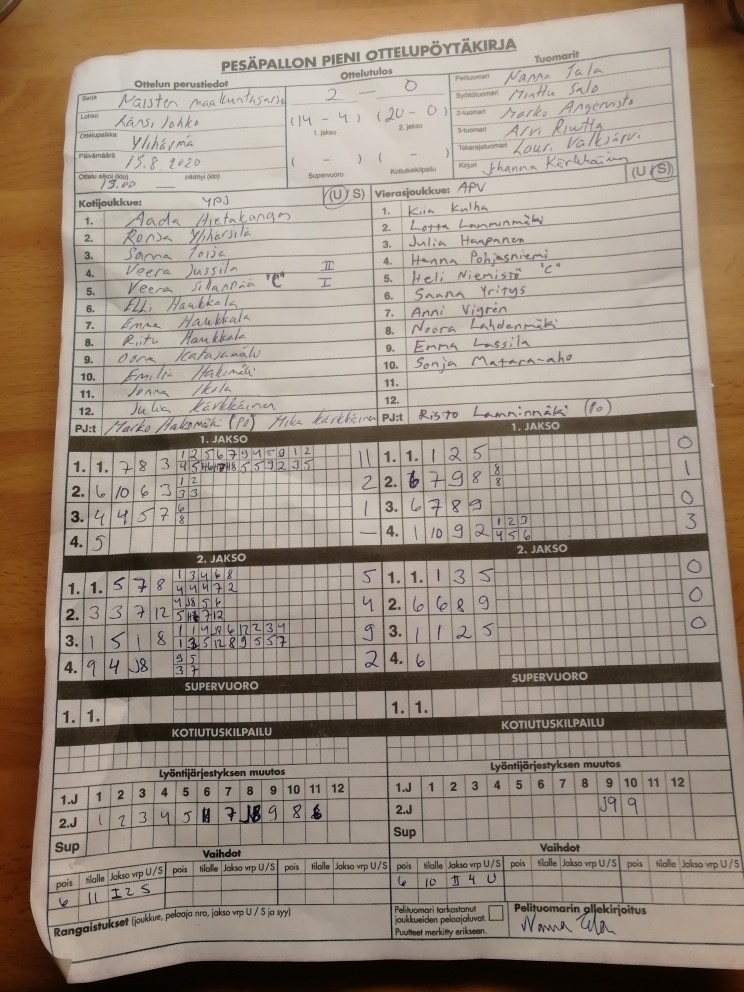 PESÄPALLON PIENI OTTELUPÖYTÄKIRJA
Ottelun perustiedot
Ottelutulos
Tuomarit
Sarja Naisten maakuntasarja
2 — 0
Pelituomari Nanna Tala
Lohko Länsilohko
(14 - 4) (20 - 0)
Syöttötuomari Minttu Salo
1. jakso 2. jakso
2-tuomari Marko Angervisto
Ottelupaikka Ylihärmä
3-tuomari Arvi Riutta
Päivämäärä 15.8.2020
( - ) ( - )
Takarajatuomari Lauri Valkjärvi
Ottelu alkoi (klo) 13.00 — päättyi (klo)
Supervuoro Kotiutuskilpailu
Kirjuri Jhanna Kärkkäinen
Kotijoukkue: YPJ (U/S)
Vierasjoukkue: APV (U/S)
1. Aada Hietakangas
2. Ronja Ylihärsilä
3. Sanna Toija
4. Veera Jussila II
5. Veera Sillanpää "C" I
6. Elli Haukkala
7. Emma Haukkala
8. Riitu Haukkala
9. Oona Katajamäki
10. Emilia Haksmäki
11. Jonna Ikola
12. Julia Kärkkäinen
PJ:t Marko Haksmäki (Po) Mika Kärkkäinen
1. Kiia Kulha
2. Lotta Lamminmäki
3. Julia Haapanen
4. Hanna Pohjasniemi
5. Heli Niemistö "C"
6. Saana Yritys
7. Anni Vigrén
8. Noora Lahdenmäki
9. Emma Lassila
10. Sonja Matara-aho
11.
12.
PJ:t Risto Lamminmäki (Po)
1. JAKSO
1. 1. 7 8 3 11
2. 6 10 6 3 1 2 3 3 2
3. 4 4 5 7 6 8 1
4. 5 —
1. JAKSO
1. 1. 1 2 5 0
2. 6 7 9 8 8 8 1
3. 6 7 8 9 0
4. 1 10 9 2 1 2 3 4 5 6 3
2. JAKSO
1. 1. 5 7 8 1 3 4 6 8 4 4 4 7 2 5
2. 3 3 7 12 4
3. 1 5 1 8 9
4. 9 4 J8 9 5 3 7 2
2. JAKSO
1. 1. 1 3 5 0
2. 6 6 8 9 0
3. 1 1 2 5 0
4. 6
SUPERVUORO
1. 1.
SUPERVUORO
1. 1.
KOTIUTUSKILPAILU
KOTIUTUSKILPAILU
Lyöntijärjestyksen muutos
1.J 1 2 3 4 5 6 7 8 9 10 11 12
2.J 1 2 3 4 5 7 9 8
Sup
Lyöntijärjestyksen muutos
1.J 1 2 3 4 5 6 7 8 9 10 11 12
2.J J9 9
Sup
Vaihdot
pois tilalle Jakso vrp U/S pois tilalle Jakso vrp U/S pois tilalle Jakso vrp U/S
6 11 I 2 S
Vaihdot
pois tilalle Jakso vrp U/S pois tilalle Jakso vrp U/S pois tilalle Jakso vrp U/S
6 10 II 4 U
Rangaistukset (joukkue, pelaaja nro, jakso vrp U/S ja syy)
Pelituomari tarkastanut joukkueiden pelaajaluvat.
Puutteet merkitty erikseen.
Pelituomarin allekirjoitus
Nanna Tala